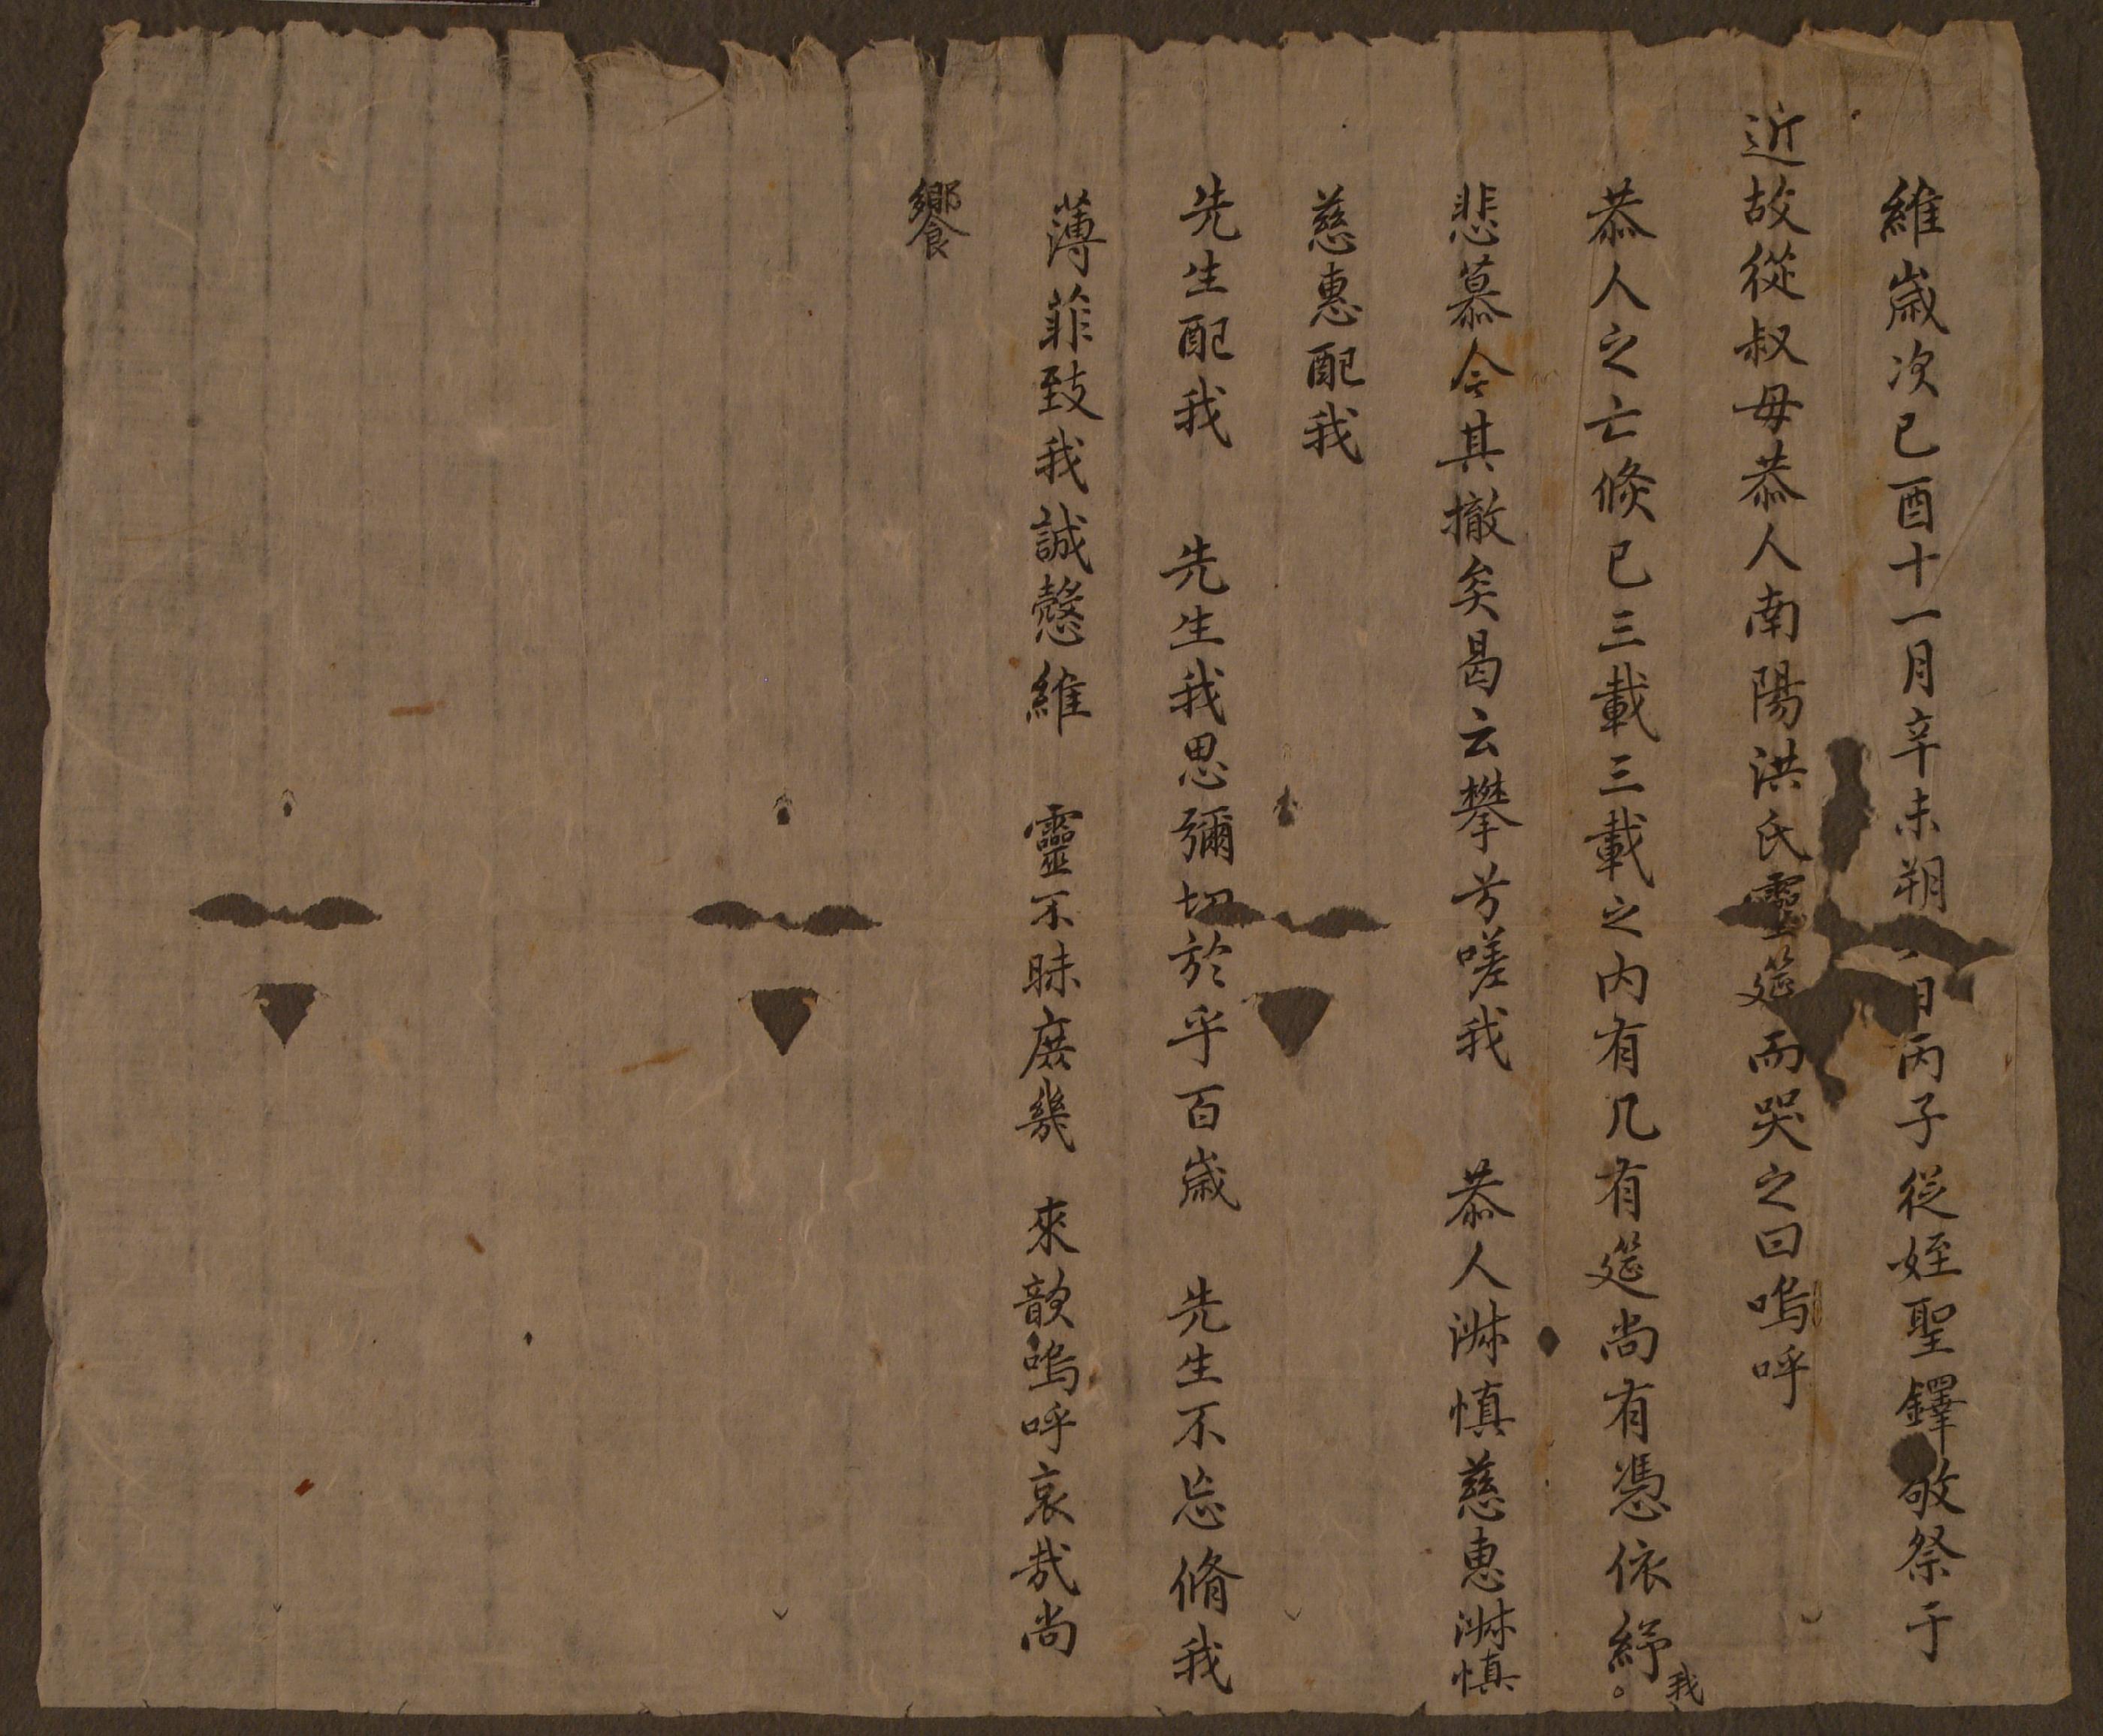 維歲次己酉十一月辛未朔日丙子從姪聖鐸敬祭于
近故從叔母恭人南陽洪氏靈筵而哭之曰嗚呼
恭人之亡倐已三載三載之內有几有筵尚有憑依紓。我
悲慕今其撤矣曷云攀兮嗟我 恭人淋慎慈惠淋慎
慈惠配我
先生配我 先生我思彌切於乎百歲 先生不忘脩我
薄菲致我誠慤維 靈不昧庶幾 來歆嗚呼哀哉尚
饗